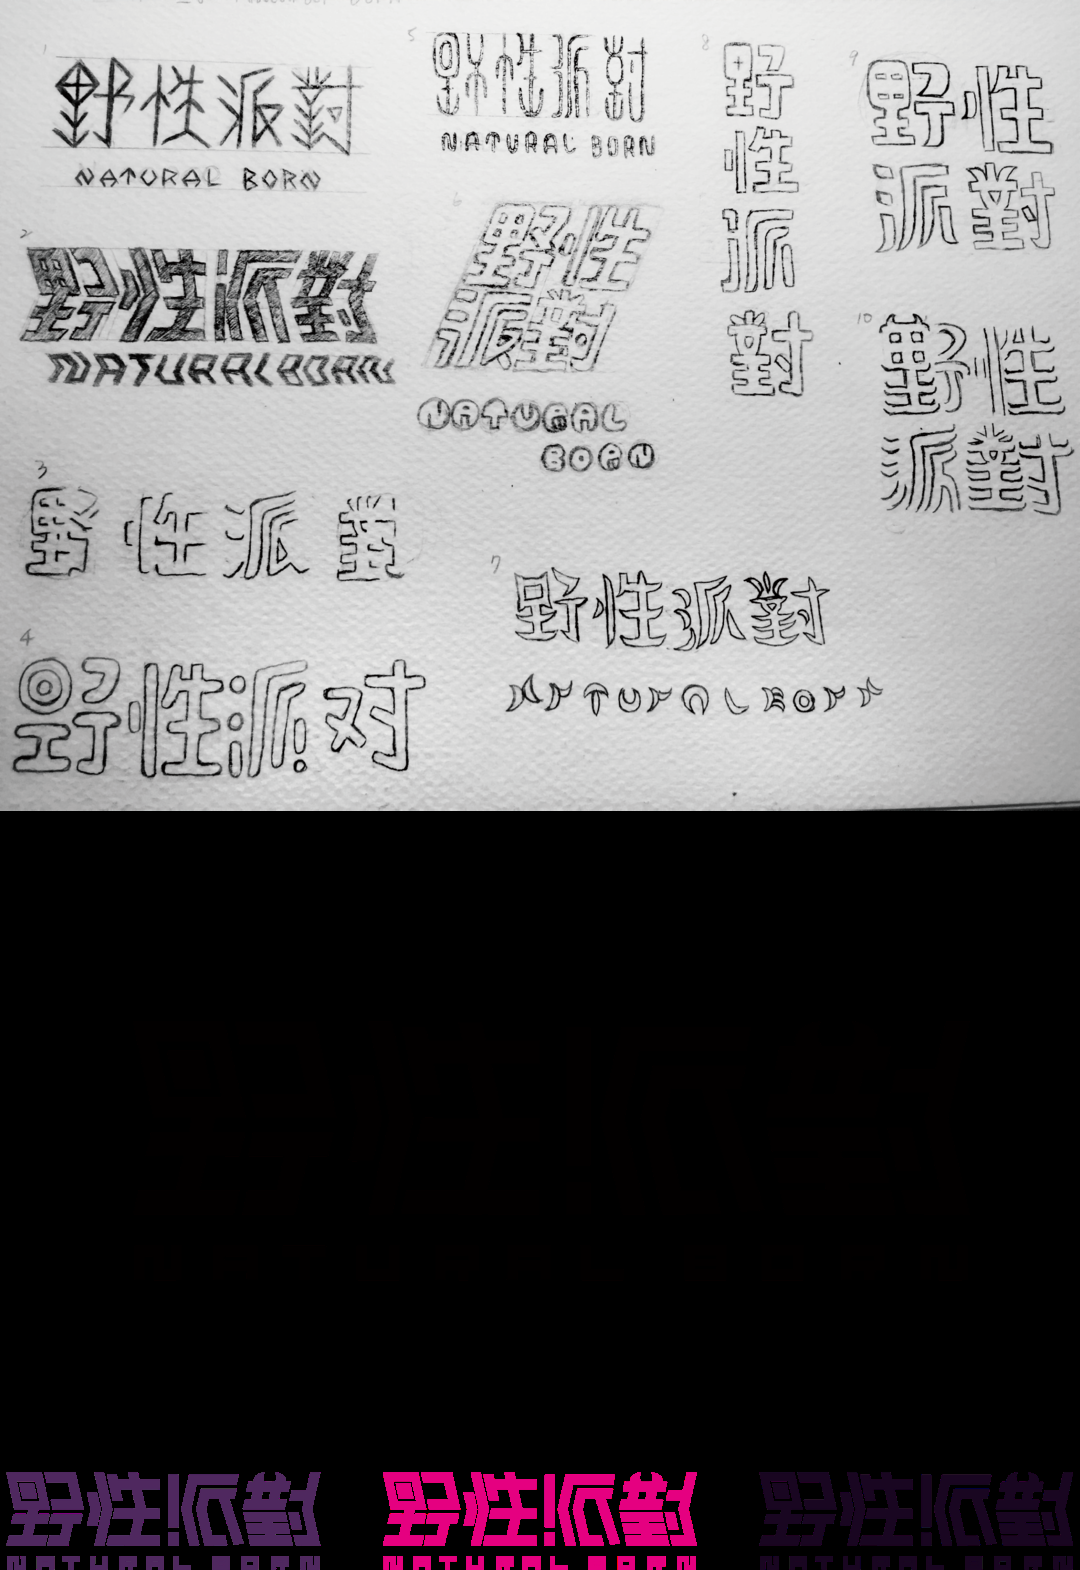 1
野性派對
NATURAL BORN
2
野性派對
NATURAL BORN
3
野性派對
4
野性派对
5
野性派對
NATURAL BORN
6
野性
派對
NATURAL
BORN
7
野性派對
NATURAL BORN
8
野
性
派
對
9
野性
派對
10
野性
派對
野性派對
NATURAL BORN
野性派對
NATURAL BORN
野性派對
NATURAL BORN
野性派對
NATURAL BORN